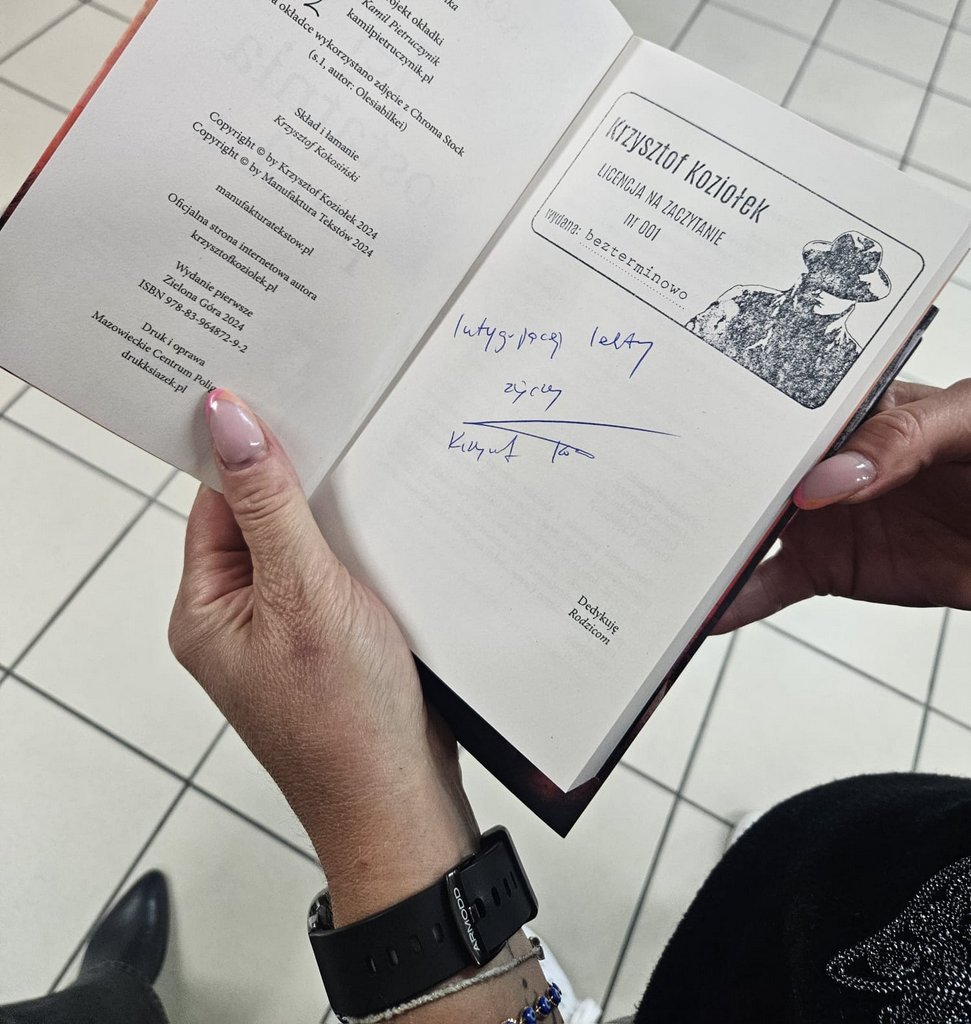 Projekt okładki
Kamil Pietruczynik
kamilpietruczynik.pl
okładce wykorzystano zdjęcie z Chroma Stock
(s.1, autor: Olesiabilkei)
Skład i łamanie
Krzysztof Kokosiński
Copyright © by Krzysztof Koziołek 2024
Copyright © by Manufaktura Tekstów 2024
manufakturatekstow.pl
Oficjalna strona internetowa autora
krzysztofkoziolek.pl
Wydanie pierwsze
Zielona Góra 2024
ISBN 978-83-964872-9-2
Druk i oprawa
Mazowieckie Centrum Polig
drukksiazek.pl
Krzysztof Koziołek
LICENCJA NA ZACZYTANIE
nr 001
wydana: bezterminowo
Intrygującej lektury
życzy
Krzysztof
Dedykuję
Rodzicom
ARMODD